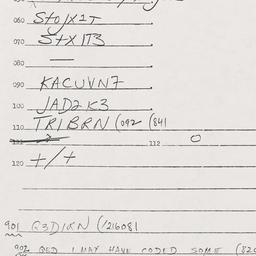 060 STOJX1T
070 STX1T3
080 —
090 KACUVN7
100 JAD2K3
110 TRIBRN (092 (841
112 O
120 +/+
901 Q3D1KN (1216081
902 QED I MAY HAVE CODED SOME (820